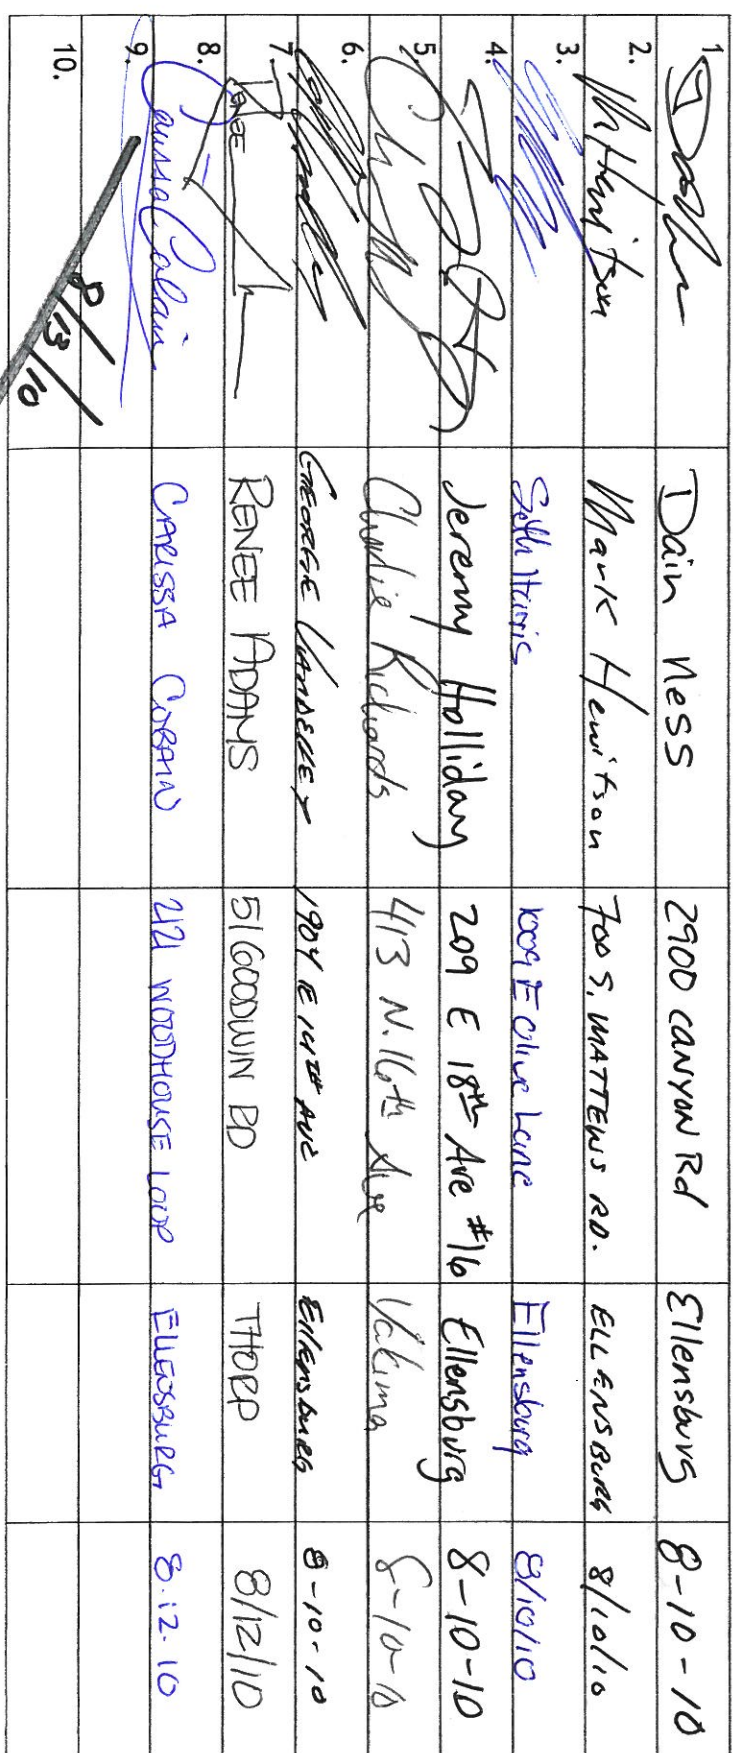 1. Dain Ness 2900 CANYON Rd Ellensburg 8-10-10
2. Mark Hewitson 700 S. MATTEWS RD. ELLENSBURG 8/10/10
3. Seth Harris 1009 E Olive Lane Ellensburg 8/10/10
4. Jeremy Holliday 209 E 18th Ave #16 Ellensburg 8-10-10
5. Charlie Richards 413 N. 16th Ave Yakima 8-10-10
6. GEORGE 1904 E 14TH AVE Ellensburg 8-10-10
7. RENEE RENEE ADAMS 51 GOODWIN RD THORP 8/12/10
8. Carissa Cobain CARISSA COBAIN 2121 WOODHOUSE LOOP ELLENSBURG 8.12.10
9.
10. 8/13/10